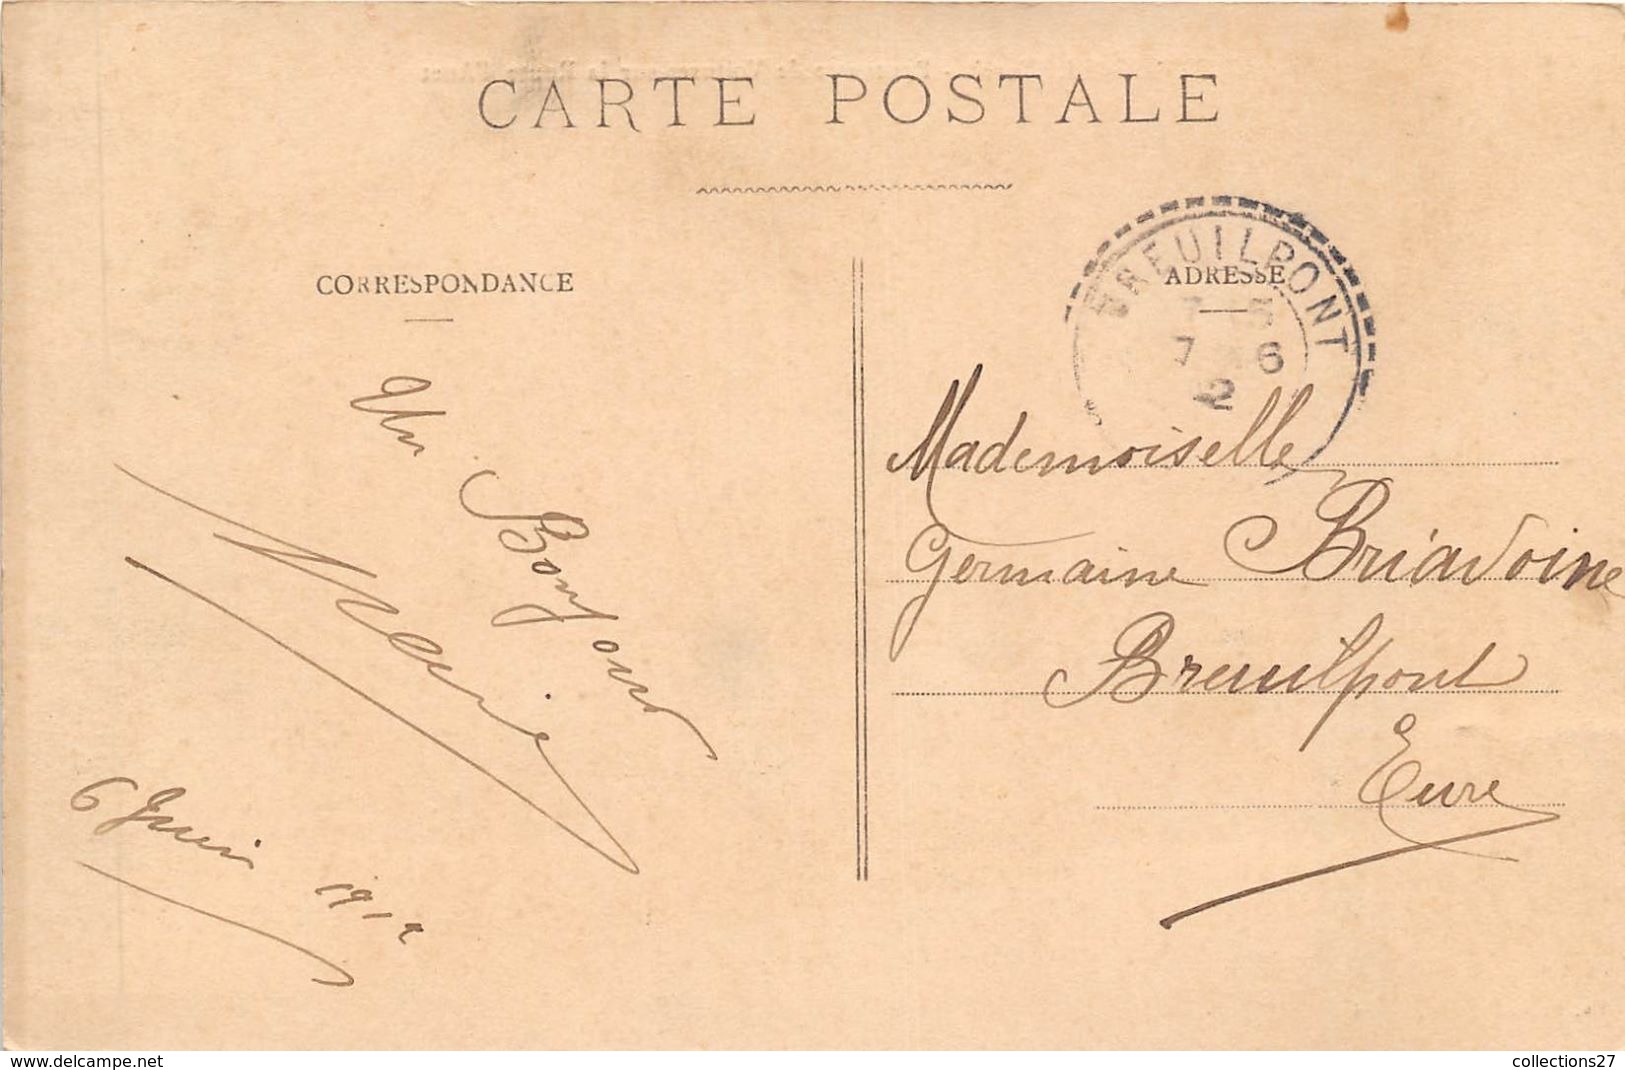 CARTE POSTALE
CORRESPONDANCE
Un
Bonjour
Marie
6 Juin 1912
ADRESSE
BREUILPONT
7 5
7 6
12
Mademoiselle
Germaine Briavoine
Breuilpont
Eure
www.delcampe.net
collections27